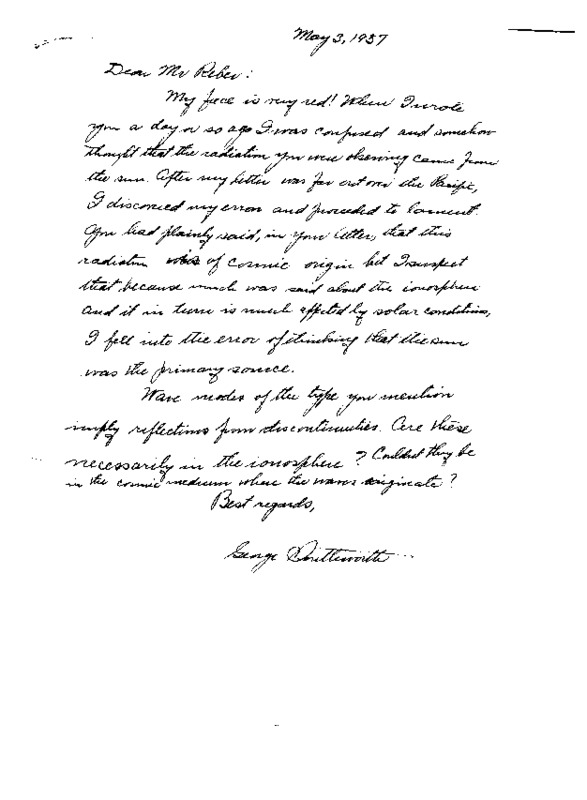 May 3, 1957
Dear Mr Reber:
My face is very red! When I wrote
you a day or so ago I was confused and somehow
thought that the radiation you were observing came from
the sun. After my letter was far out over the Pacific,
I discovered my error and proceeded to lament.
You had plainly said, in your letter, that this
radiation was of cosmic origin but I suspect
that because much was said about the ionosphere
and it in turn is much affected by solar conditions,
I fell into the error of thinking that the sun
was the primary source.
Wave modes of the type you mention
imply reflections from discontinuities. Are these
necessarily in the ionosphere? Couldnt they be
in the cosmic medium where the waves originate?
Best regards,
George